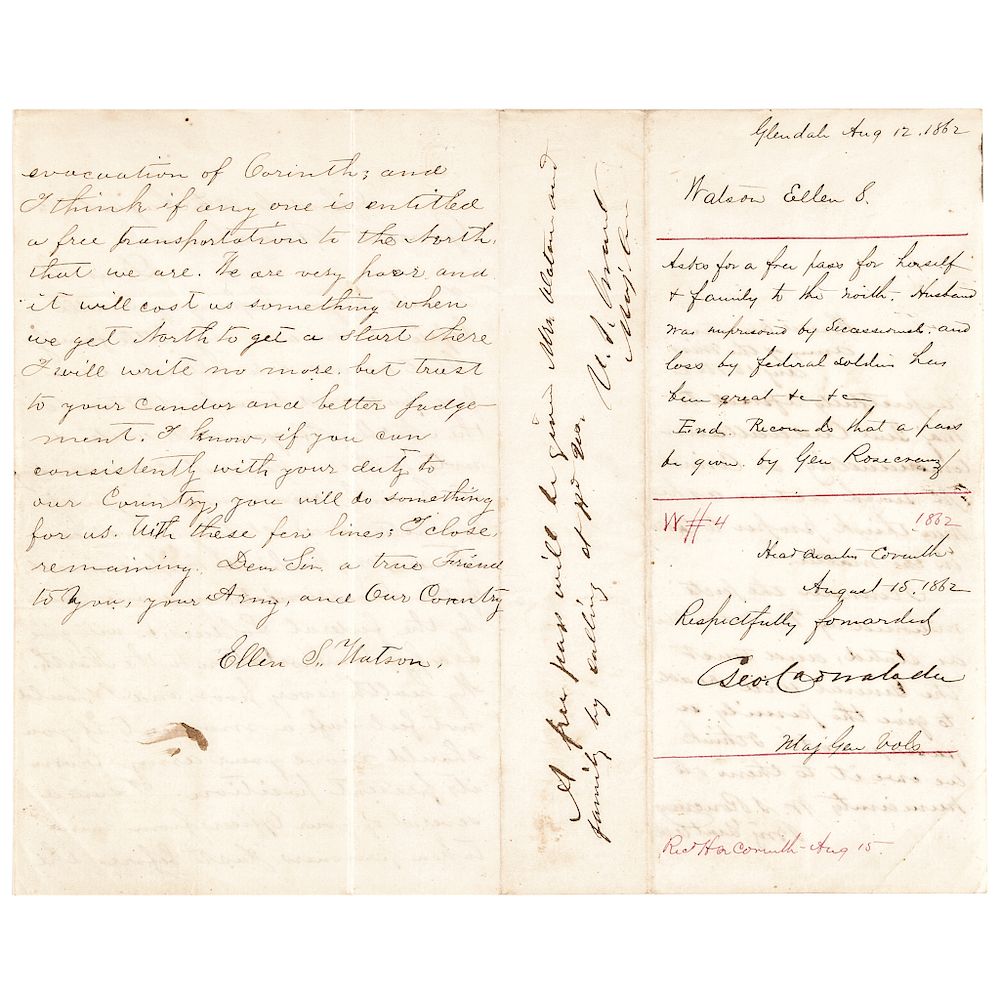 evacuation of Corinth; and
I think if any one is entitled
a free transportation to the North,
that we are. We are very poor and
it will cost us something when
we get North to get a start there
I will write no more. but trust
to your Candor and better judge-
ment. I know, if you can
consistently with your duty to
our Country, you will do something
for us. With these few lines; I close,
remaining. Dear Sir, a true Friend
to you, your Army, and Our Country
Ellen S. Watson.
A free pass will be given Mrs Watson and
family by calling at Hd Qrs.
U. S. Grant
Maj. Gen
Glendale Aug 12. 1862
Watson Ellen S.
Asks for a free pass for herself
& family to the north. Husband
was imprisond by Secessionists, and
loss by federal soldiers has
been great &c &c
End. Recomends that a pass
be given. by Gen Rosecranz
W#4 1862
Head Quarters Corinth
August 15. 1862
Respectfully forwarded
Geo. Cadwalader
Maj Gen Vols
Recd Corinth - Aug 15.